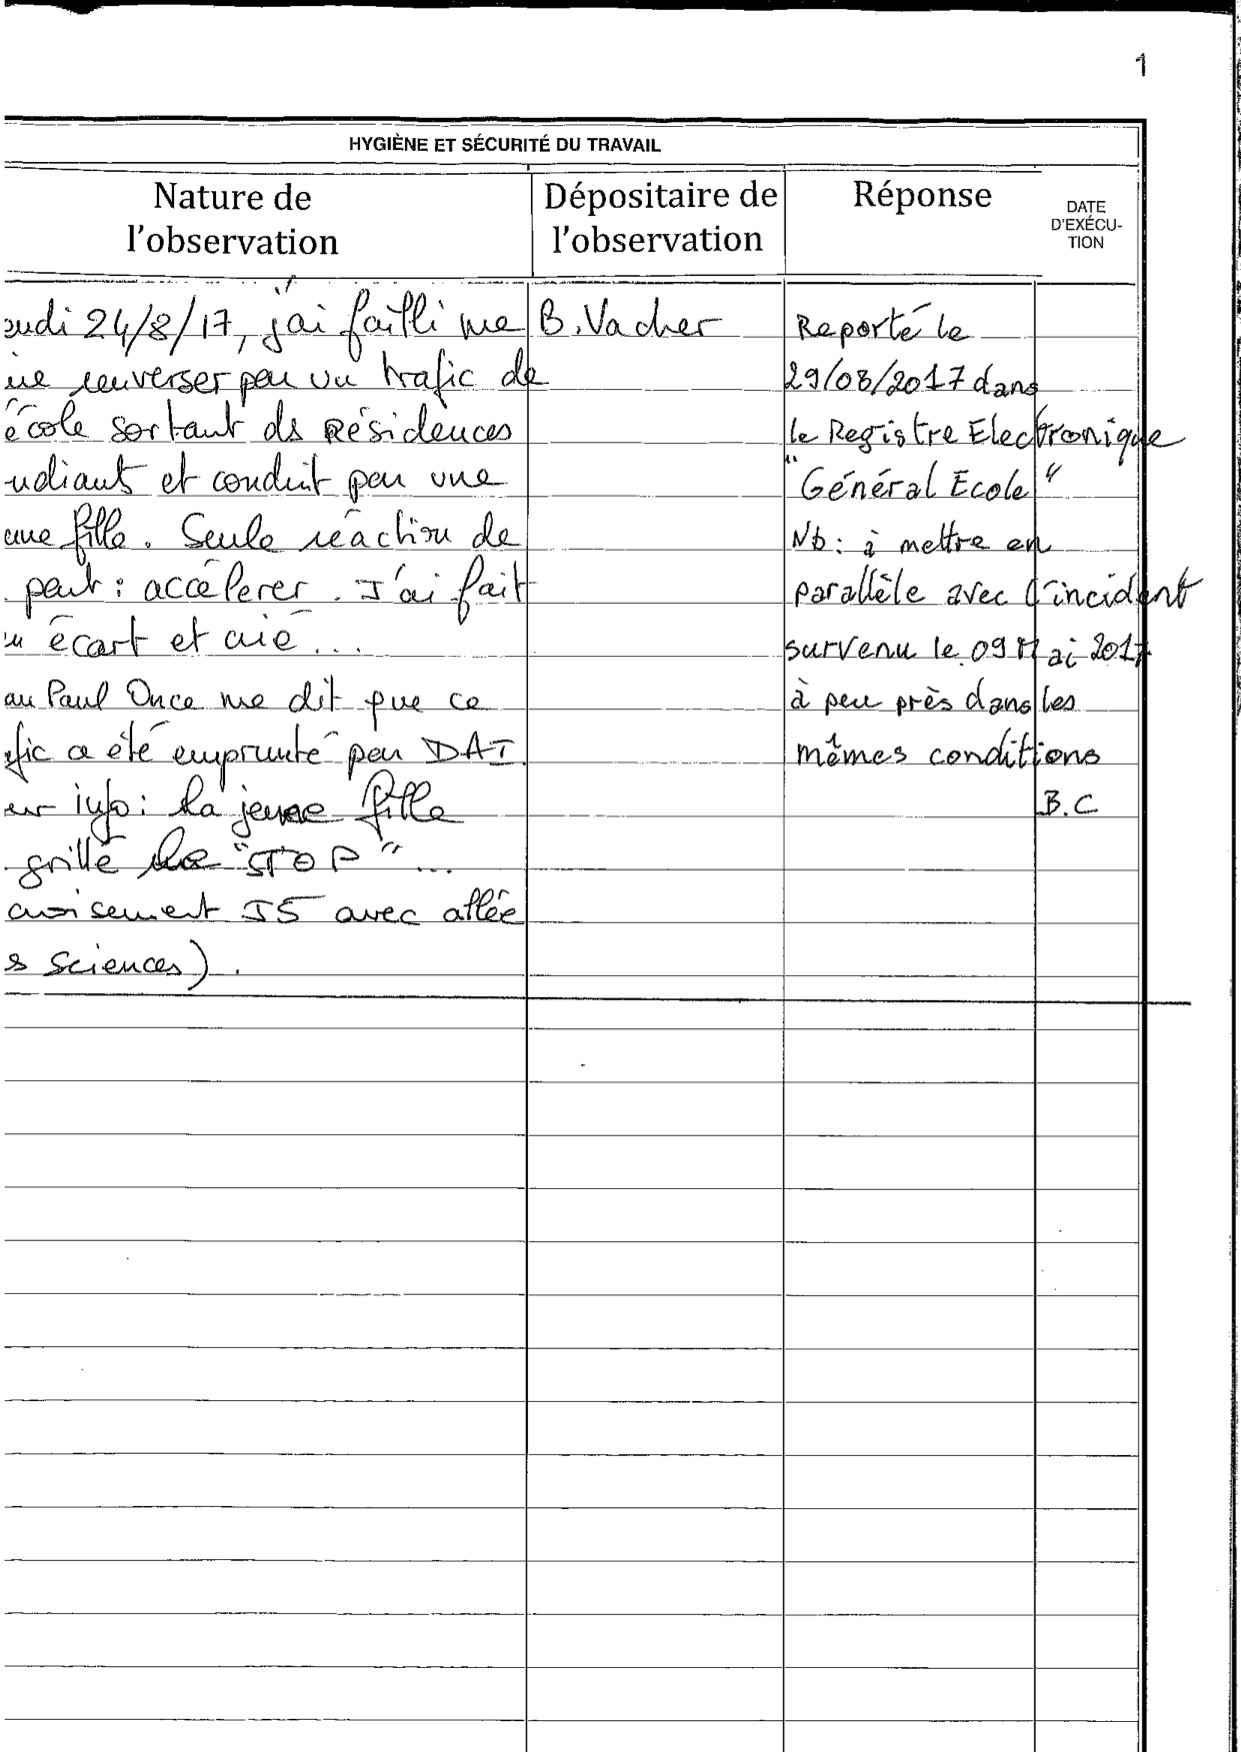 1
HYGIÈNE ET SÉCURITÉ DU TRAVAIL
Nature de
l'observation
Dépositaire de
l'observation
Réponse
DATE
D'EXÉCU-
TION
eudi 24/8/17, j'ai failli me
renverser par un trafic de
école sortant ds Résidences
udiants et conduit par une
eune fille. Seule réaction de
part : accélerer. J'ai fait
écart et aié...
au Paul Once me dit que ce
afic a été emprunté par DAI.
info: la jeune fille
grillé le "STOP"...
croisement J5 avec allée
s Sciences).
B. Vacher
Reporté le
29/08/2017 dans
le Registre Electronique
"Général Ecole"
Nb: à mettre en
parallèle avec l'incident
survenu le 09 Mai 2017
à peu près dans les
mêmes conditions
B.C